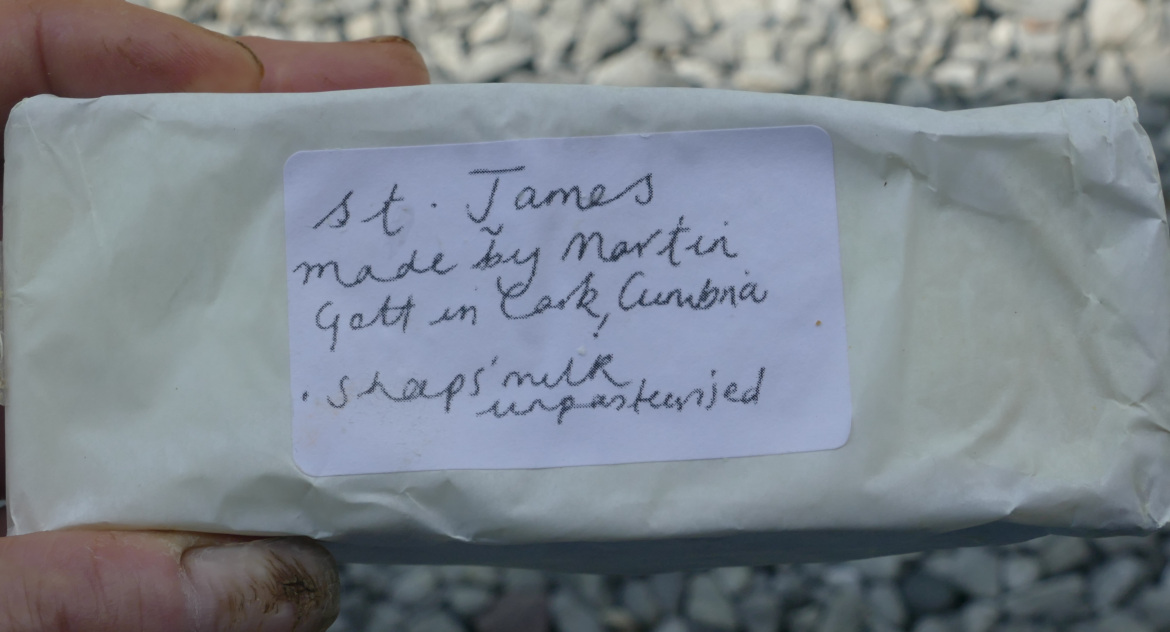 St. James
made by Martin
Gott in Cark, Cumbria
. Shaps' milk
unpasteurised